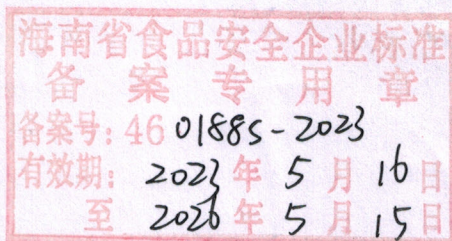 海南省食品安全企业标准
备案专用章
备案号：46 01885-2023
有效期：2023年5月16日
至 2026年5月15日